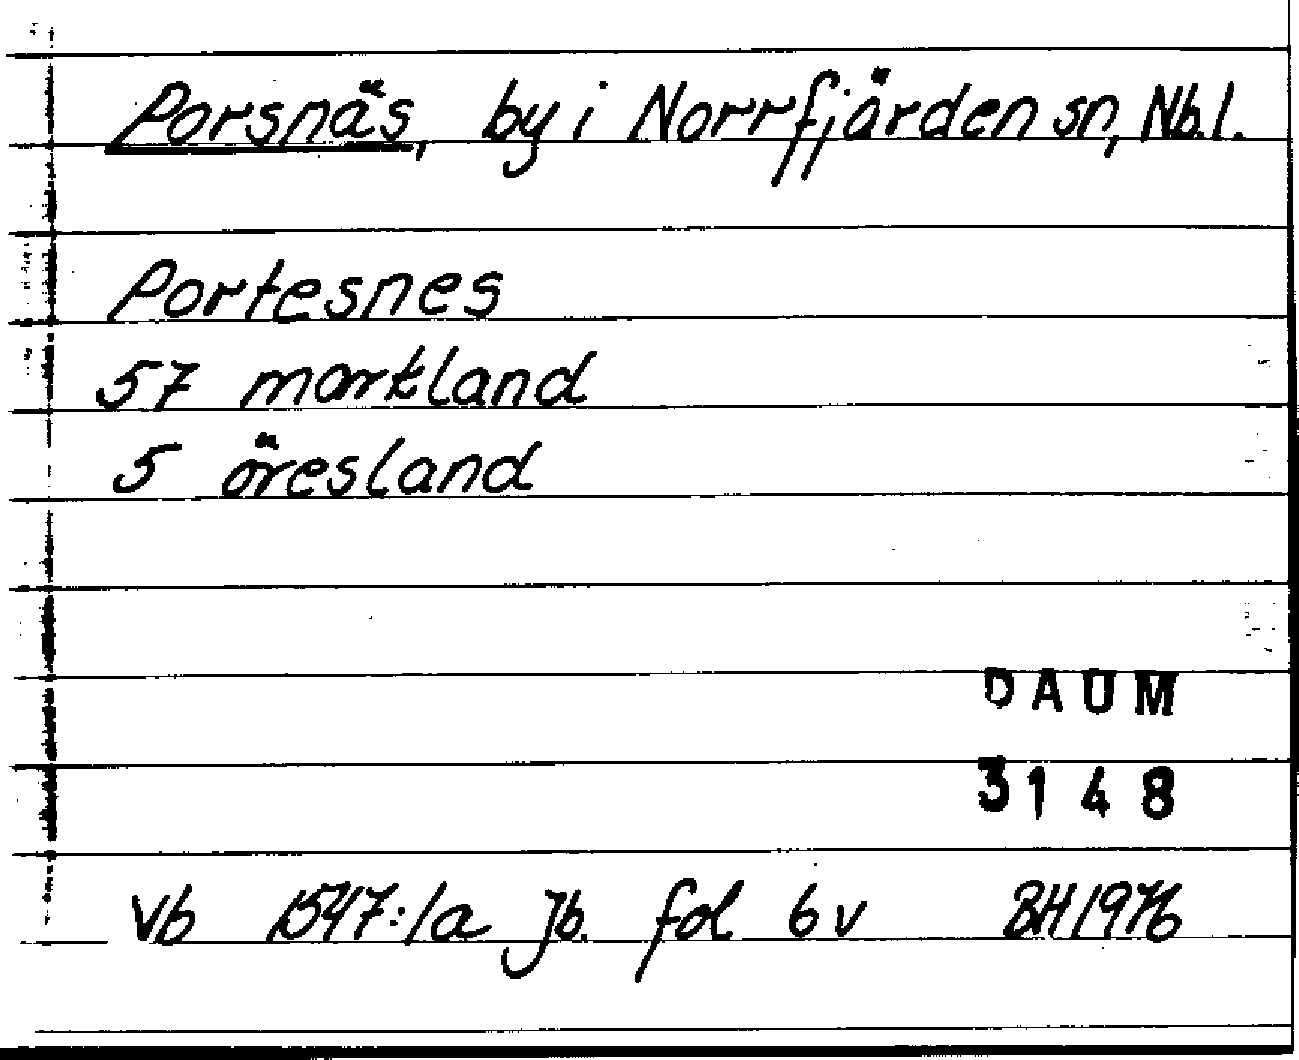 Porsnäs, by i Norrfjärden sn, Nb.l.
Portesnes
57 markland
5 öresland
DAUM
3148
Vb 1547:1a Jb. fol 6v BH 1976